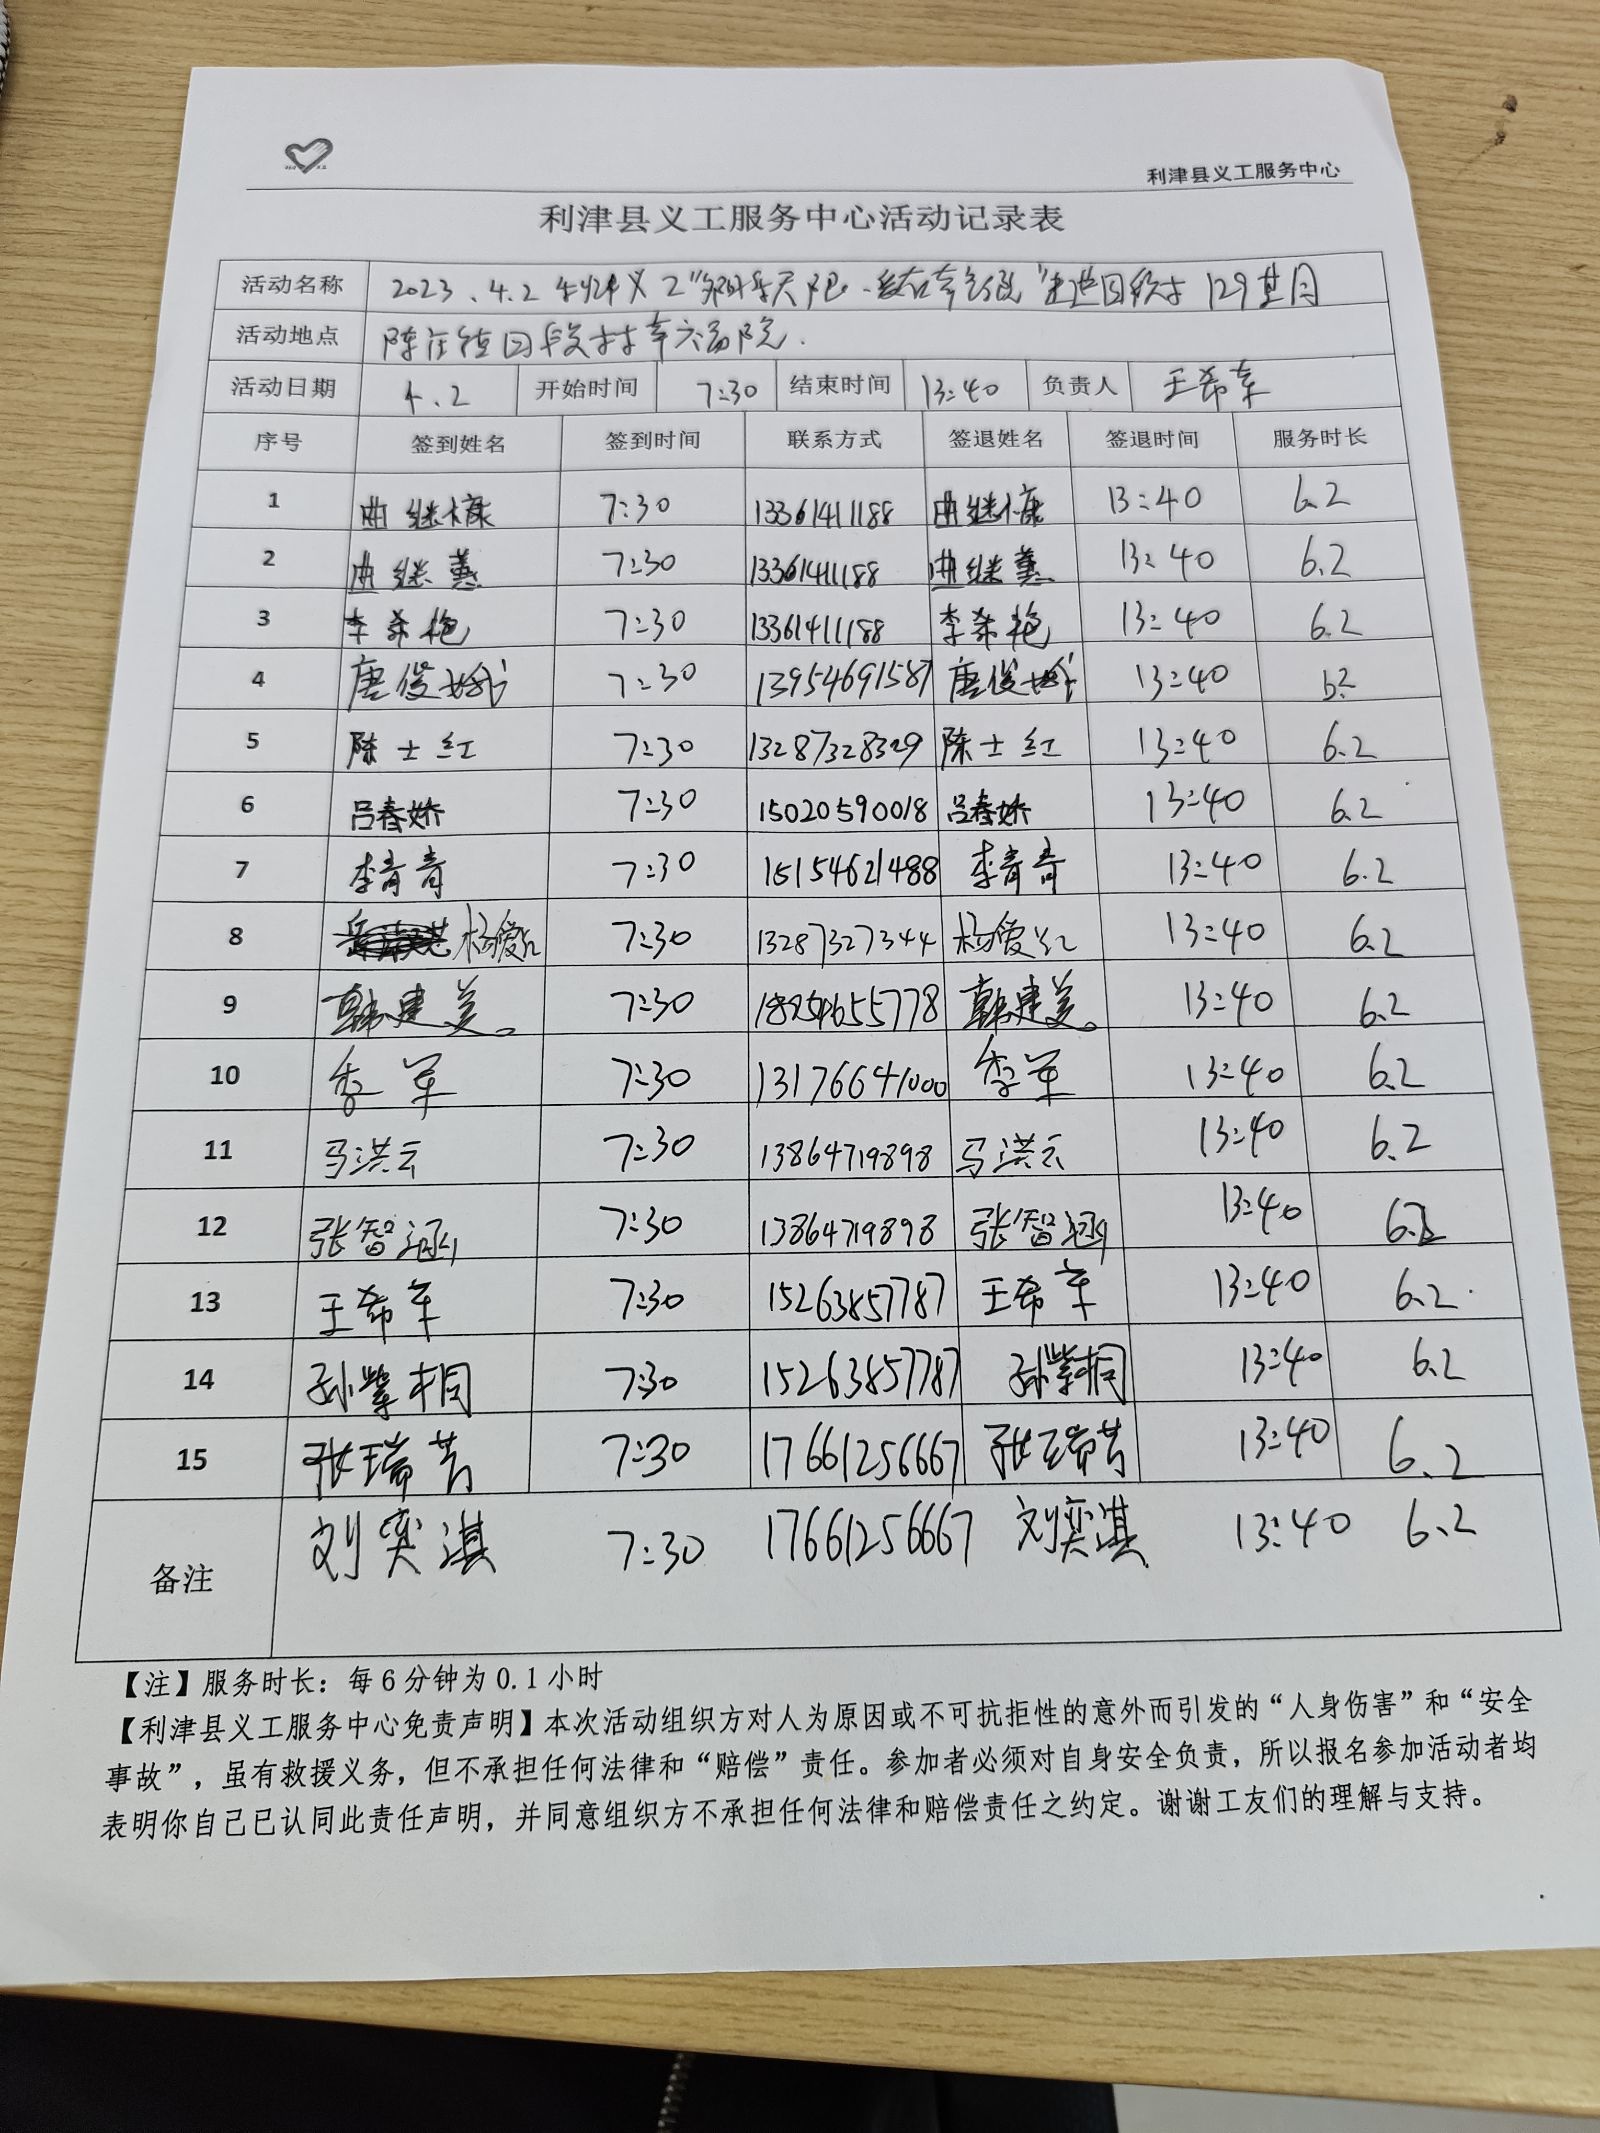 利津县义工服务中心
利津县义工服务中心活动记录表
活动名称 2023.4.2 义工 129期
活动地点 陈庄镇 村幸福院.
活动日期 4.2 开始时间 7:30 结束时间 13:40 负责人 王希军
序号 签到姓名 签到时间 联系方式 签退姓名 签退时间 服务时长
1 曲继康 7:30 13361411188 曲继康 13:40 6.2
2 曲继 7:30 13361411188 曲继 13:40 6.2
3 李希艳 7:30 13361411188 李希艳 13:40 6.2
4 唐俊 7:30 13954691587 唐俊 13:40 6.2
5 陈士红 7:30 13287328329 陈士红 13:40 6.2
6 吕春娇 7:30 15020590018 吕春娇 13:40 6.2
7 李青青 7:30 15154621488 李青青 13:40 6.2
8 杨爱红 7:30 13287327344 杨爱红 13:40 6.2
9 韩建美。 7:30 韩建美。 13:40 6.2
10 李军 7:30 13176641000 李军 13:40 6.2
11 马洪云 7:30 13864719898 马洪云 13:40 6.2
12 张智涵 7:30 13864719898 张智涵 13:40 6.2
13 王希军 7:30 15263857787 王希军 13:40 6.2
14 孙紫桐 7:30 15263857787 孙紫桐 13:40 6.2
15 张瑞芳 7:30 17661256667 张瑞芳 13:40 6.2
备注 刘奕淇 7:30 17661256667 刘奕淇 13:40 6.2
【注】服务时长：每6分钟为0.1小时
【利津县义工服务中心免责声明】本次活动组织方对人为原因或不可抗拒性的意外而引发的“人身伤害”和“安全
事故”，虽有救援义务，但不承担任何法律和“赔偿”责任。参加者必须对自身安全负责，所以报名参加活动者均
表明你自己已认同此责任声明，并同意组织方不承担任何法律和赔偿责任之约定。谢谢工友们的理解与支持。